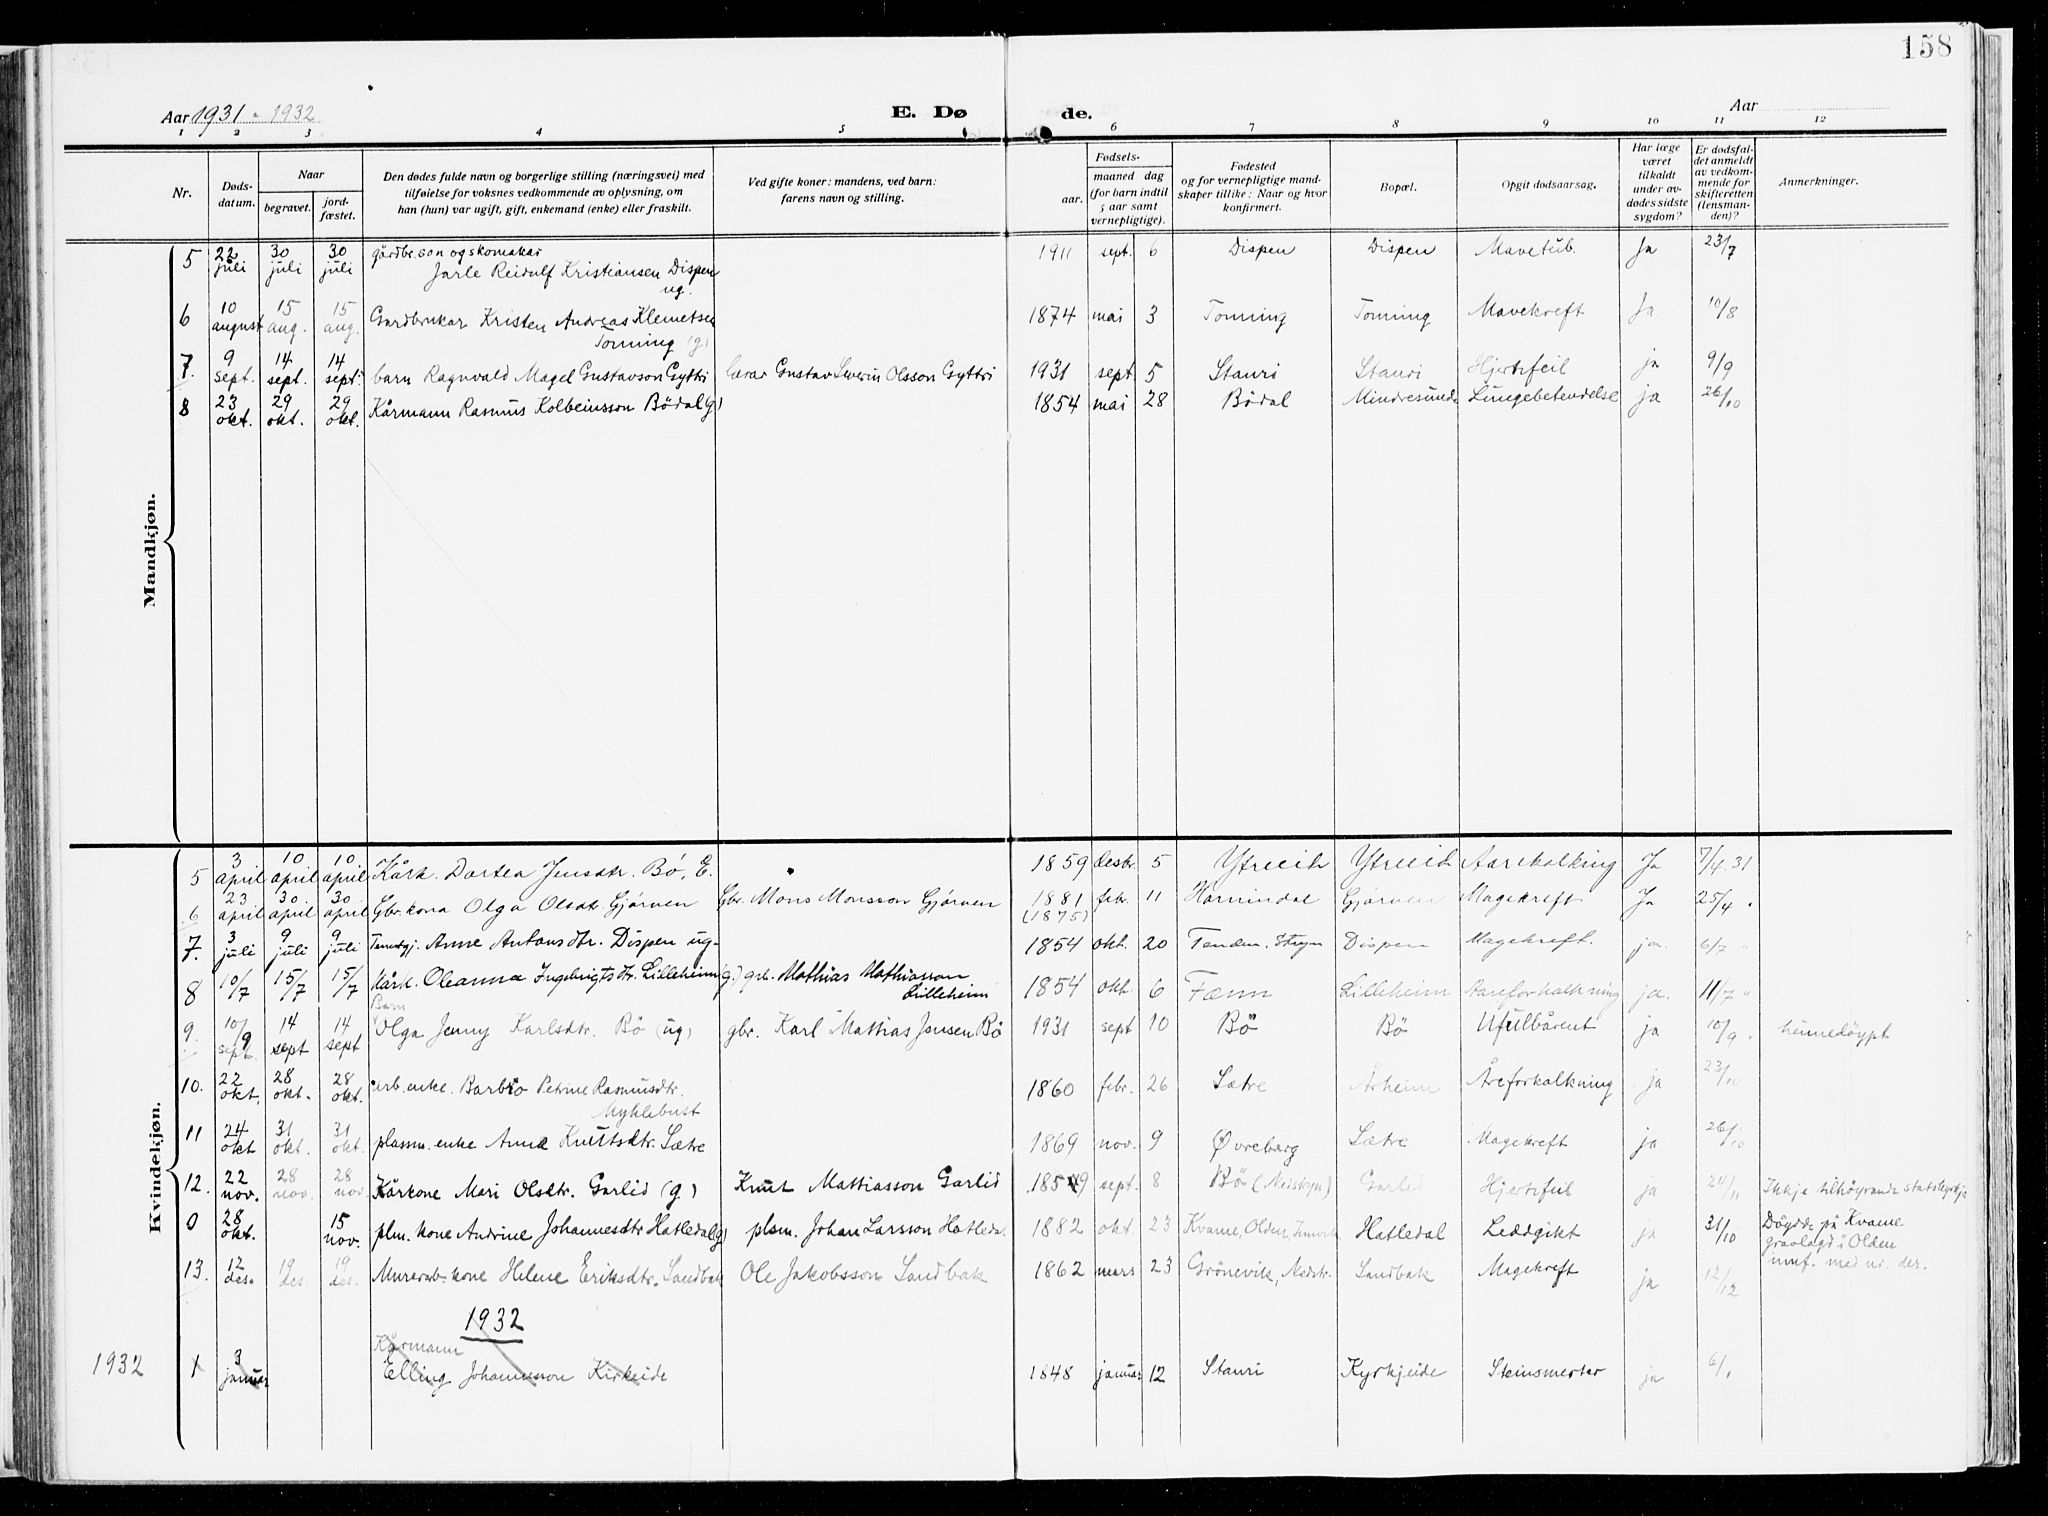 158
Aar 1931 - 1932
E. Dø de.
Aar
1 2 3 4 5 6 7 8 9 10 11 12
Nr.
Døds-
datum.
Naar
begravet.
jord-
fæstet.
Den dødes fulde navn og borgerlige stilling (næringsvei) med
tilføielse for voksnes vedkommende av oplysning, om
han (hun) var ugift, gift, enkemand (enke) eller fraskilt.
Ved gifte koner: mandens, ved barn:
farens navn og stilling.
Fødsels-
aar.
maaned dag
(for barn indtil
5 aar samt
vernepligtige).
Fødested
og for vernepligtige mand-
skaper tillike: Naar og hvor
konfirmert.
Bopæl.
Opgit dødsaarsag.
Har læge
været
tilkaldt
under av-
dødes sidste
sygdom?
Er dødsfal-
det anmeldt
av vedkom-
mende for
skifteretten
(lensman-
den)?
Anmerkninger.
Mandkjøn.
5 22 juli 30 juli 30 juli gårdbr.son og skomakar 1911 sept. 6 Dispen Dispen Mavetub. Ja 23/7
Jarle Reidulf Kristiansen Dispen
ug.
6 10 august 15 aug. 15 aug. Gardbrukar Kristen Andreas Klemetsen 1874 mai 3 Tonning Tonning Mavekreft Ja 10/8
Tonning (g)
7. 9 sept. 14 sept. 14 sept. barn Ragnvald Magel Gustavson Gyttri lærar Gustav Severin Olsson Gyttri 1931 sept 5 Stauri Stauri Hjertefeil ja 9/9
8 23 okt. 29 okt. 29 okt. Kårmann Rasmus Kolbeinsson Bödal (g) 1854 mai 28 Bödal Mindresunde Lungebetendelse ja 26/10
Kvindekjøn.
5 3 april 10 april 10 april Kårk. Dortea Jensdtr. Bö, E. 1859 desbr. 5 Ytreeide Ytreeide Aarekalking Ja 7/4 31
6 23 april 30 april 30 april Gbr.kona Olga Olsdtr. Gjörven Gbr. Mons Monsson Gjörven 1881 (1875) febr. 11 Hornindal Gjörven Magekreft Ja 25/4 "
7. 3 juli 9 juli 9 juli Anne Antonsdtr. Dispen ug. 1854 okt. 20 Tenden, Stryn Dispen Magekreft. ja. 6/7 "
8 10/7 15/7 15/7 Kårk. Oleanna Ingebrigtsdtr. Lilleheim (g.) gbr. Mathias Mathiasson 1854 okt. 6 Fænn Lilleheim Aareforkalkning ja. 11/7 "
Lilleheim
Barn
9. 10/9 sept. 14 sept 14 sept Olga Jenny Karlsdtr. Bö (ug) gbr. Karl Mattias Jensen Bö 1931 sept 10 Bö Bö Ufulbårent ja 10/9 " heimedöypt
10. 22 okt. 28 okt. 28 okt. arb.enke. Barbro Petrine Rasmusdtr. 1860 febr. 26 Sætre Årheim Åreforkalkning ja 23/10
Myklebust
11 24 okt 31 okt. 31 okt. plassm. enke Anna Knutsdtr. Sætre 1869 nov. 9 Øvreberg Sætre Magekreft ja 26/10
12. 22 nov. 28 nov. 28 nov. Kårkone Mari Olsdtr. Garlid (g.) Knut Mattiasson Garlid 1859 sept. 8 Bö (Nedstryn) Garlid Hjertefeil ja 24/11 Ikkje tilhöyrande statskyrkja
0 28 okt. 15 nov. plm. kone Andrine Johannesdtr Hatledal (g) plsm. Johan Larsson Hatledal 1882 okt. 23 Kvame, Olden, Hatledal Leddgikt ja 31/10 Döydde på Kvame
gravlagd i Olden
innf. med nr. der.
13. 12 des. 19 des. 19 des. Murerarb.kone Helene Eriksdtr. Sandbak Ole Jakobsson Sandbak 1862 mars 23 Grönevik, Nedstr. Sandbak Magekreft ja 12/12
1932
Kårmann
1932 1 3 januar Elling Johannesson Kirkeide 1848 januar 12 Stauri Kyrkjeide Steinsmerter ja 6/1